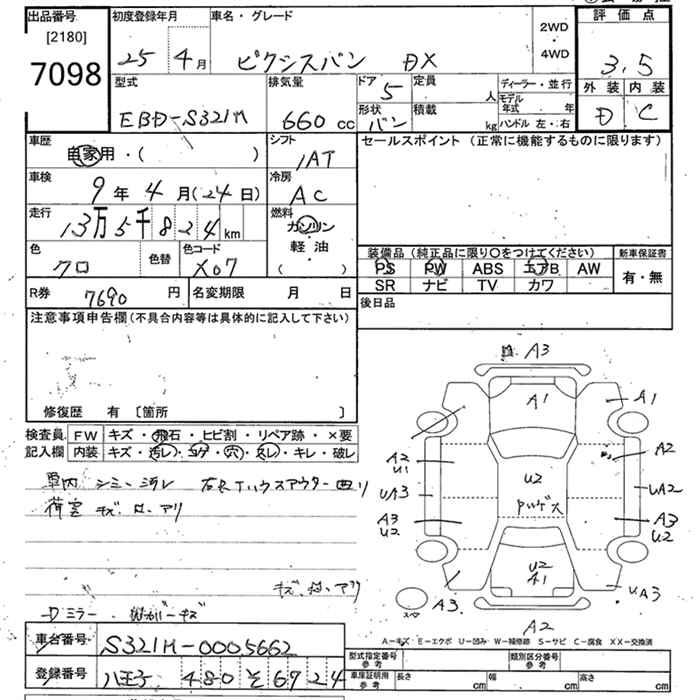 出品番号 初度登録年月 車名・グレード 2WD・4WD 評価点
[2180]
7098
25 4月 ピクシスバン DX 3.5
型式 排気量 ドア 定員 ディーラー・並行 外装 内装
EBD-S321M 660cc 5 人 モデル年式 年 D C
形状 積載 ハンドル 左・右
バン kg
車歴 シフト セールスポイント(正常に機能するものに限ります)
自家用・( ) 1AT
車検 冷房
9年4月(24日) AC
走行 燃料
13万5千824km ガソリン
軽油
( )
色 色替 色コード
クロ X07
装備品(純正品に限り○をつけてください) 新車保証書
PS PW ABS エアB AW 有・無
SR ナビ TV カワ
R券 7690円 名変期限 月 日 後日品
注意事項申告欄(不具合内容等は具体的に記入して下さい)
修復歴 有 [箇所 ]
検査員記入欄 FW キズ・飛石・ヒビ割・リペア跡・×要
内装 キズ・汚レ・コゲ・穴・スレ・キレ・破レ
車内 シミ・汚レ
荷室 キズ
キズ
ミラー キズ
A3
A1
A1
A2
U1
A2
UA3
U2
UA2
A3
U2
A3
U2
U2
A1
A3
UA3
A2
A-キズ E-エクボ U-凹み W-補修跡 S-サビ C-腐食 XX-交換済
車台番号 S321M-0005662
登録番号 八王子 480 そ 6924
型式指定番号 参考 類別区分番号 参考
車庫証明用 参考 長さ cm 幅 cm 高さ cm